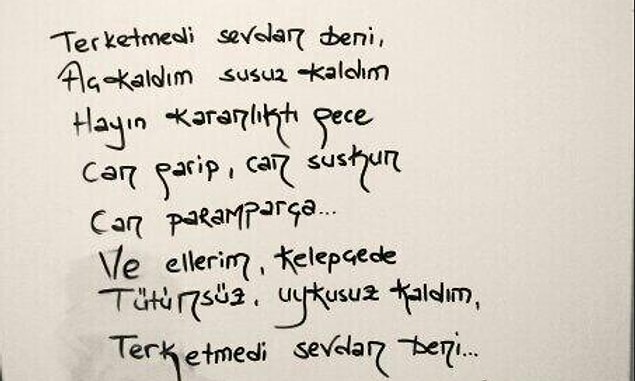 Terketmedi sevdan beni,
Aç kaldım susuz kaldım
Hayın karanlıktı gece
Can garip, can suskun
Can paramparça...
Ve ellerim, kelepçede
Tütünsüz, uykusuz kaldım,
Terketmedi sevdan beni...